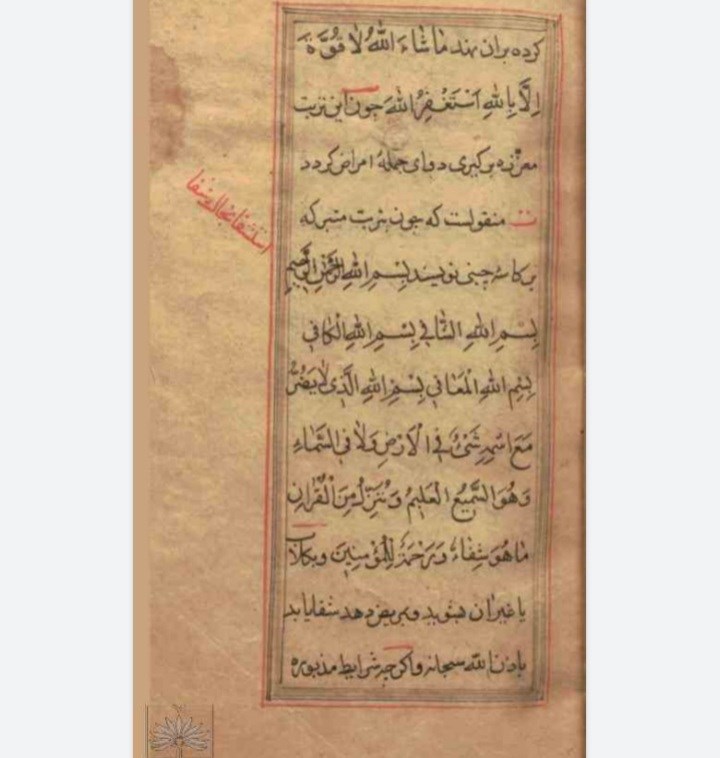 کرده بران نهند مَا شَاءَ اللّٰهُ لَا قُوَّةَ
اِلَّا بِاللّٰهِ اَسْتَغْفِرُ اللّٰهَ چون این تربت
معزّزه برگیری دوای جمله امراض کردد
ت منقولست که چون تربت متبرکه
بر کاسهٔ چینی نویسند بِسْمِ اللّٰهِ الرَّحْمٰنِ الرَّحِیمِ
بِسْمِ اللّٰهِ الشَّافِی بِسْمِ اللّٰهِ الْکَافِی
بِسْمِ اللّٰهِ الْمُعَافِی بِسْمِ اللّٰهِ الَّذِی لَا یَضُرُّ
مَعَ اسْمِهِ شَیْئٌ فِی الْاَرْضِ وَلَا فِی السَّمَاءِ
وَهُوَ السَّمِیعُ الْعَلِیمُ وَنُنَزِّلُ مِنَ الْقُرْاٰنِ
مَا هُوَ شِفَاءٌ وَرَحْمَةٌ لِلْمُؤْمِنِینَ وبکلاب
یا غیر ان بشوید وبمریض دهد شفا یابد
باذن اللّٰه سبحانه واکرچه شرایط مذبوره